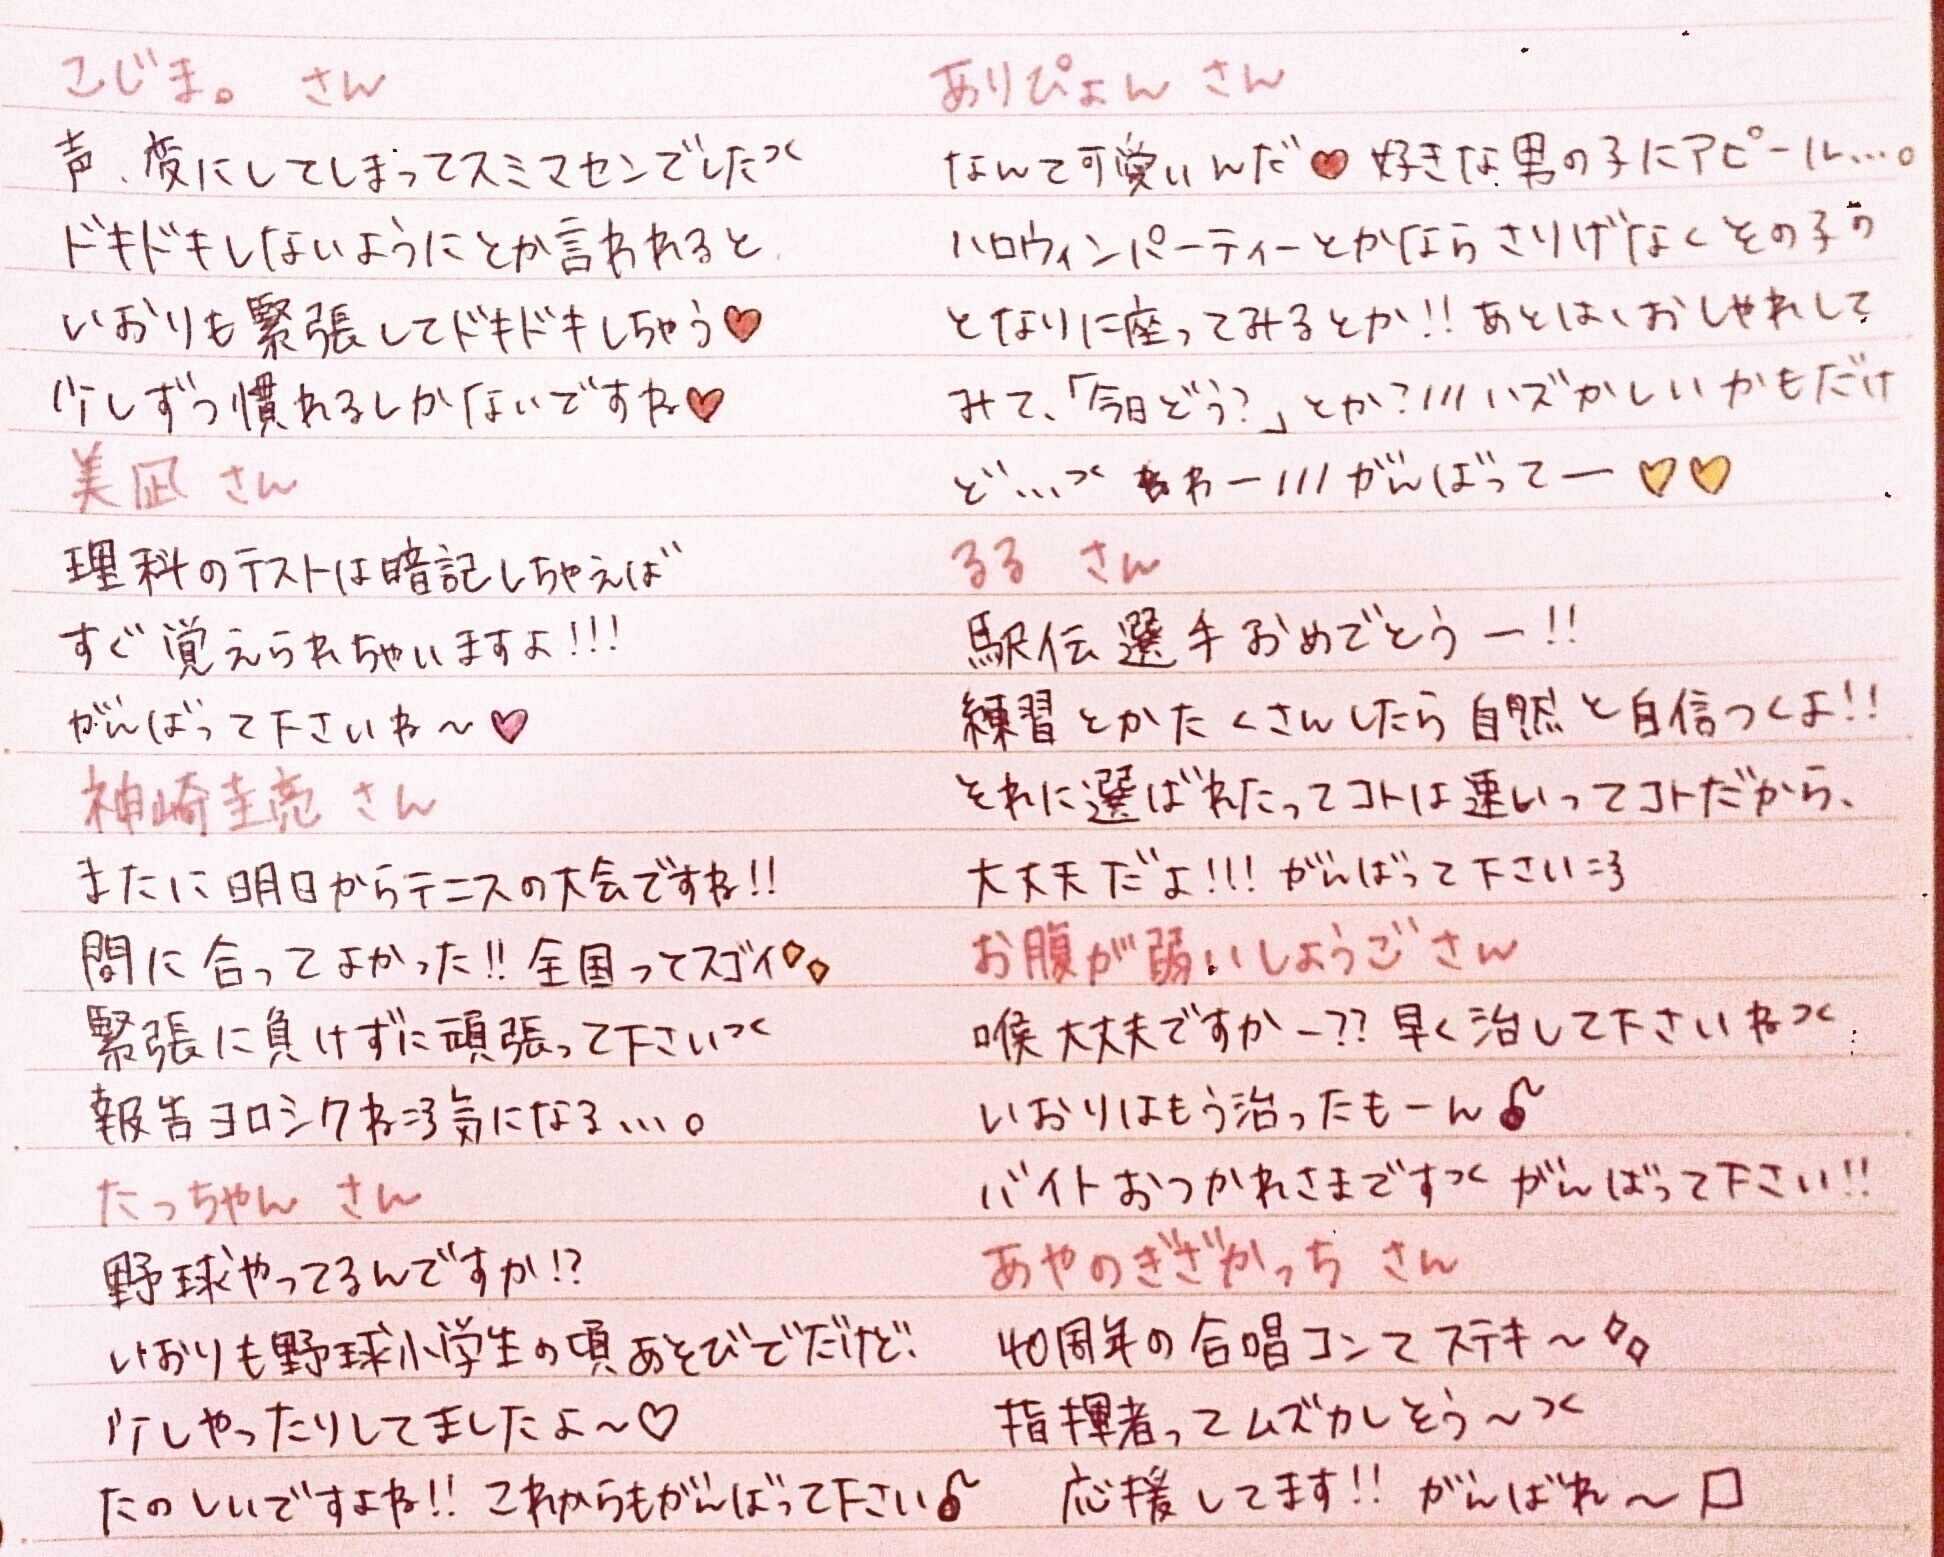 こじま。 さん
声、変にしてしまってスミマセンでした><
ドキドキしないようにとか言われると
いおりも緊張してドキドキしちゃう♥
少しずつ慣れるしかないですね♥
美凪 さん
理科のテストは暗記しちゃえば
すぐ覚えられちゃいますよ!!!
がんばって下さいね〜♥
神崎圭亮 さん
まさに明日からテニスの大会ですね!!
間に合ってよかった!! 全国ってスゴイ◇◇
緊張に負けずに頑張って下さい><
報告ヨロシクね=3 気になる...。
たっちゃん さん
野球やってるんですか!?
いおりも野球小学生の頃あそびでだけど、
少しやったりしてましたよ〜♡
たのしいですよね!! これからもがんばって下さい♪
ありぴょん さん
なんて可愛いんだ♥ 好きな男の子にアピール...。
ハロウィンパーティーとかなら さりげなくその子の
となりに座ってみるとか!! あとは、おしゃれして
みて、「今日どう?」とか?/// ハズかしいかもだけ
ど...>< わー/// がんばってー♥♥
るる さん
駅伝選手おめでとうー!!
練習とかたくさんしたら自然と自信つくよ!!
それに選ばれたってコトは速いってコトだから、
大丈夫だよ!!! がんばって下さい=3
お腹が弱いしょうご さん
喉大丈夫ですかー?? 早く治して下さいね><
いおりはもう治ったもーん♪
バイトおつかれさまです>< がんばって下さい!!
あやのぎざかっち さん
40周年の合唱コンてステキ〜◇◇
指揮者ってムズカしそう〜><
応援してます!! がんばれ〜